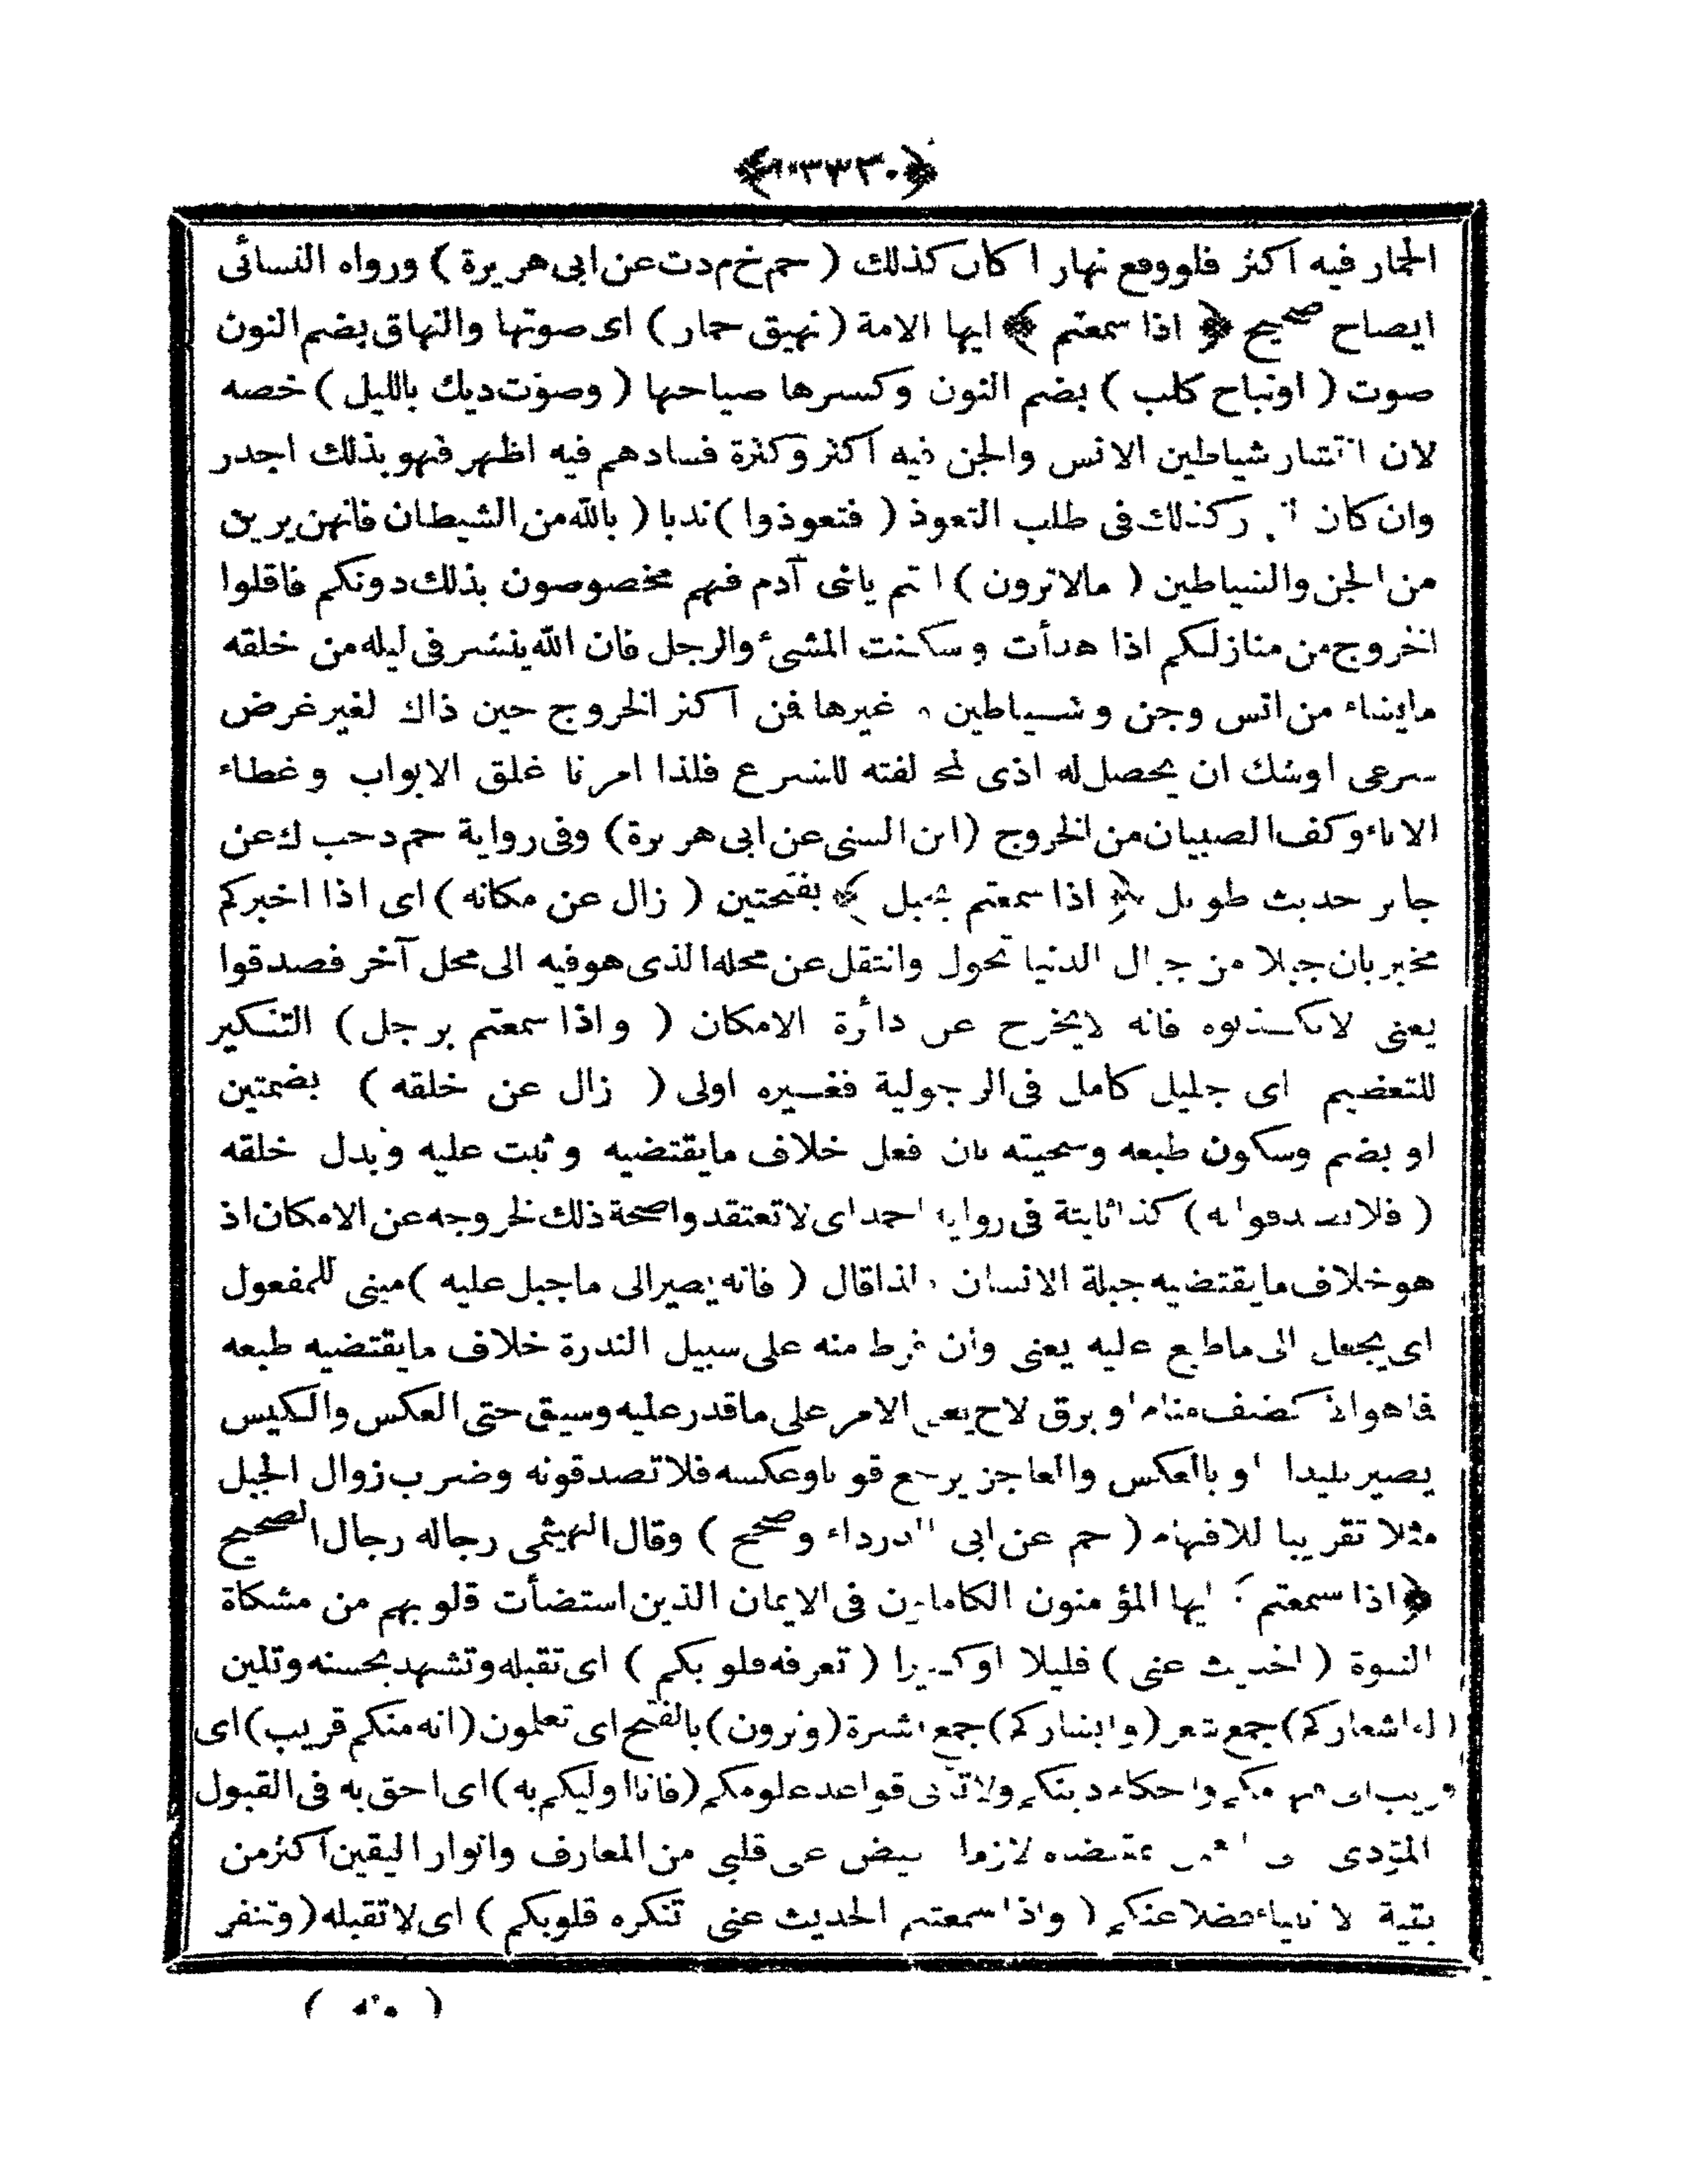 ﴿٣٣٢﴾
الحمار فيه اكثر فلو وقع نهارا كان كذلك ( حم خ م د ت عن ابى هريرة ) ورواه النسائى
ايضا ح صحيح ﴿ اذا سمعتم ﴾ ايها الامة ( نهيق حمار ) اى صوتها والنهاق بضم النون
صوت ( او نباح كلب ) بضم النون وكسرها صياحها ( وصوت ديك بالليل ) خصه
لان انتشار شياطين الانس والجن فيه اكثر وكثرة فسادهم فيه اظهر فهو بذلك اجدر
وان كان كذلك فى طلب التعوذ ( فتعوذوا ) ندبا ( بالله من الشيطان فانهن يرين
من الجن والشياطين ( مالا ترون ) انتم يابنى آدم فهم مخصوصون بذلك دونكم فاقلوا
الخروج من منازلكم اذا هدأت وسكنت المشئ والرجل فان الله ينشر فى ليله من خلقه
مايشاء من انس وجن وشياطين وغيرها فمن اكثر الخروج حين ذاك لغير غرض
شرعى اوشك ان يحصل له اذى لمخالفته للشرع فلذا امرنا غلق الابواب وغطاء
الاناء وكف الصبيان من الخروج ( ابن السنى عن ابى هريرة ) وفى رواية حم د حب ك عن
جابر حديث طويل ﴿ اذا سمعتم بجبل ﴾ بفتحتين ( زال عن مكانه ) اى اذا اخبركم
مخبر بان جبلا من جبال الدنيا تحول وانتقل عن محله الذى هو فيه الى محل آخر فصدقوا
يعنى لاتكذبوه فانه لايخرج عن دائرة الامكان ( واذا سمعتم برجل ) التنكير
للتعظيم اى جليل كامل فى الرجولية فغيره اولى ( زال عن خلقه ) بضمتين
او بضم وسكون طبعه وسجيته بان فعل خلاف مايقتضيه وثبت عليه وبدل خلقه
( فلا تصدقوا به ) كذا ثابتة فى رواية احمد اى لاتعتقدوا صحة ذلك لخروجه عن الامكان اذ
هو خلاف مايقتضيه جبلة الانسان ولذا قال ( فانه يصير الى ماجبل عليه ) مبنى للمفعول
اى يجعل الى ماطبع عليه يعنى وان فرط منه على سبيل الندرة خلاف مايقتضيه طبعه
فما هو الا كضيف منام او برق لاح يعنى الامر على ماقدر عليه وسبق حتى العكس والكيس
يصير بليدا او بالعكس والعاجز يرجع قويا وعكسه فلا تصدقونه وضرب زوال الجبل
مثلا تقريبا للافهام ( حم عن ابى الدرداء وصحح ) وقال الهيثمى رجاله رجال الصحيح
﴿ اذا سمعتم ﴾ ايها المؤمنون الكاملون فى الايمان الذين استضأت قلوبهم من مشكاة
النبوة ( الحديث عنى ) قليلا او كثيرا ( تعرفه قلوبكم ) اى تقبله وتشهد بحسنه وتلين
( له اشعاركم ) جمع شعر ( وابشاركم ) جمع بشرة ( وترون ) بالفتح اى تعلمون ( انه منكم قريب ) اى
قريب واحكام دينكم ولا قواعد علومكم ( فانا اوليكم به ) اى احق به فى القبول
المؤدى لازما على قلبى من المعارف وانوار اليقين اكثر من
بقية الانبياء فضلا عنكم ( واذا سمعتم الحديث عنى تنكره قلوبكم ) اى لاتقبله ( وتنفر